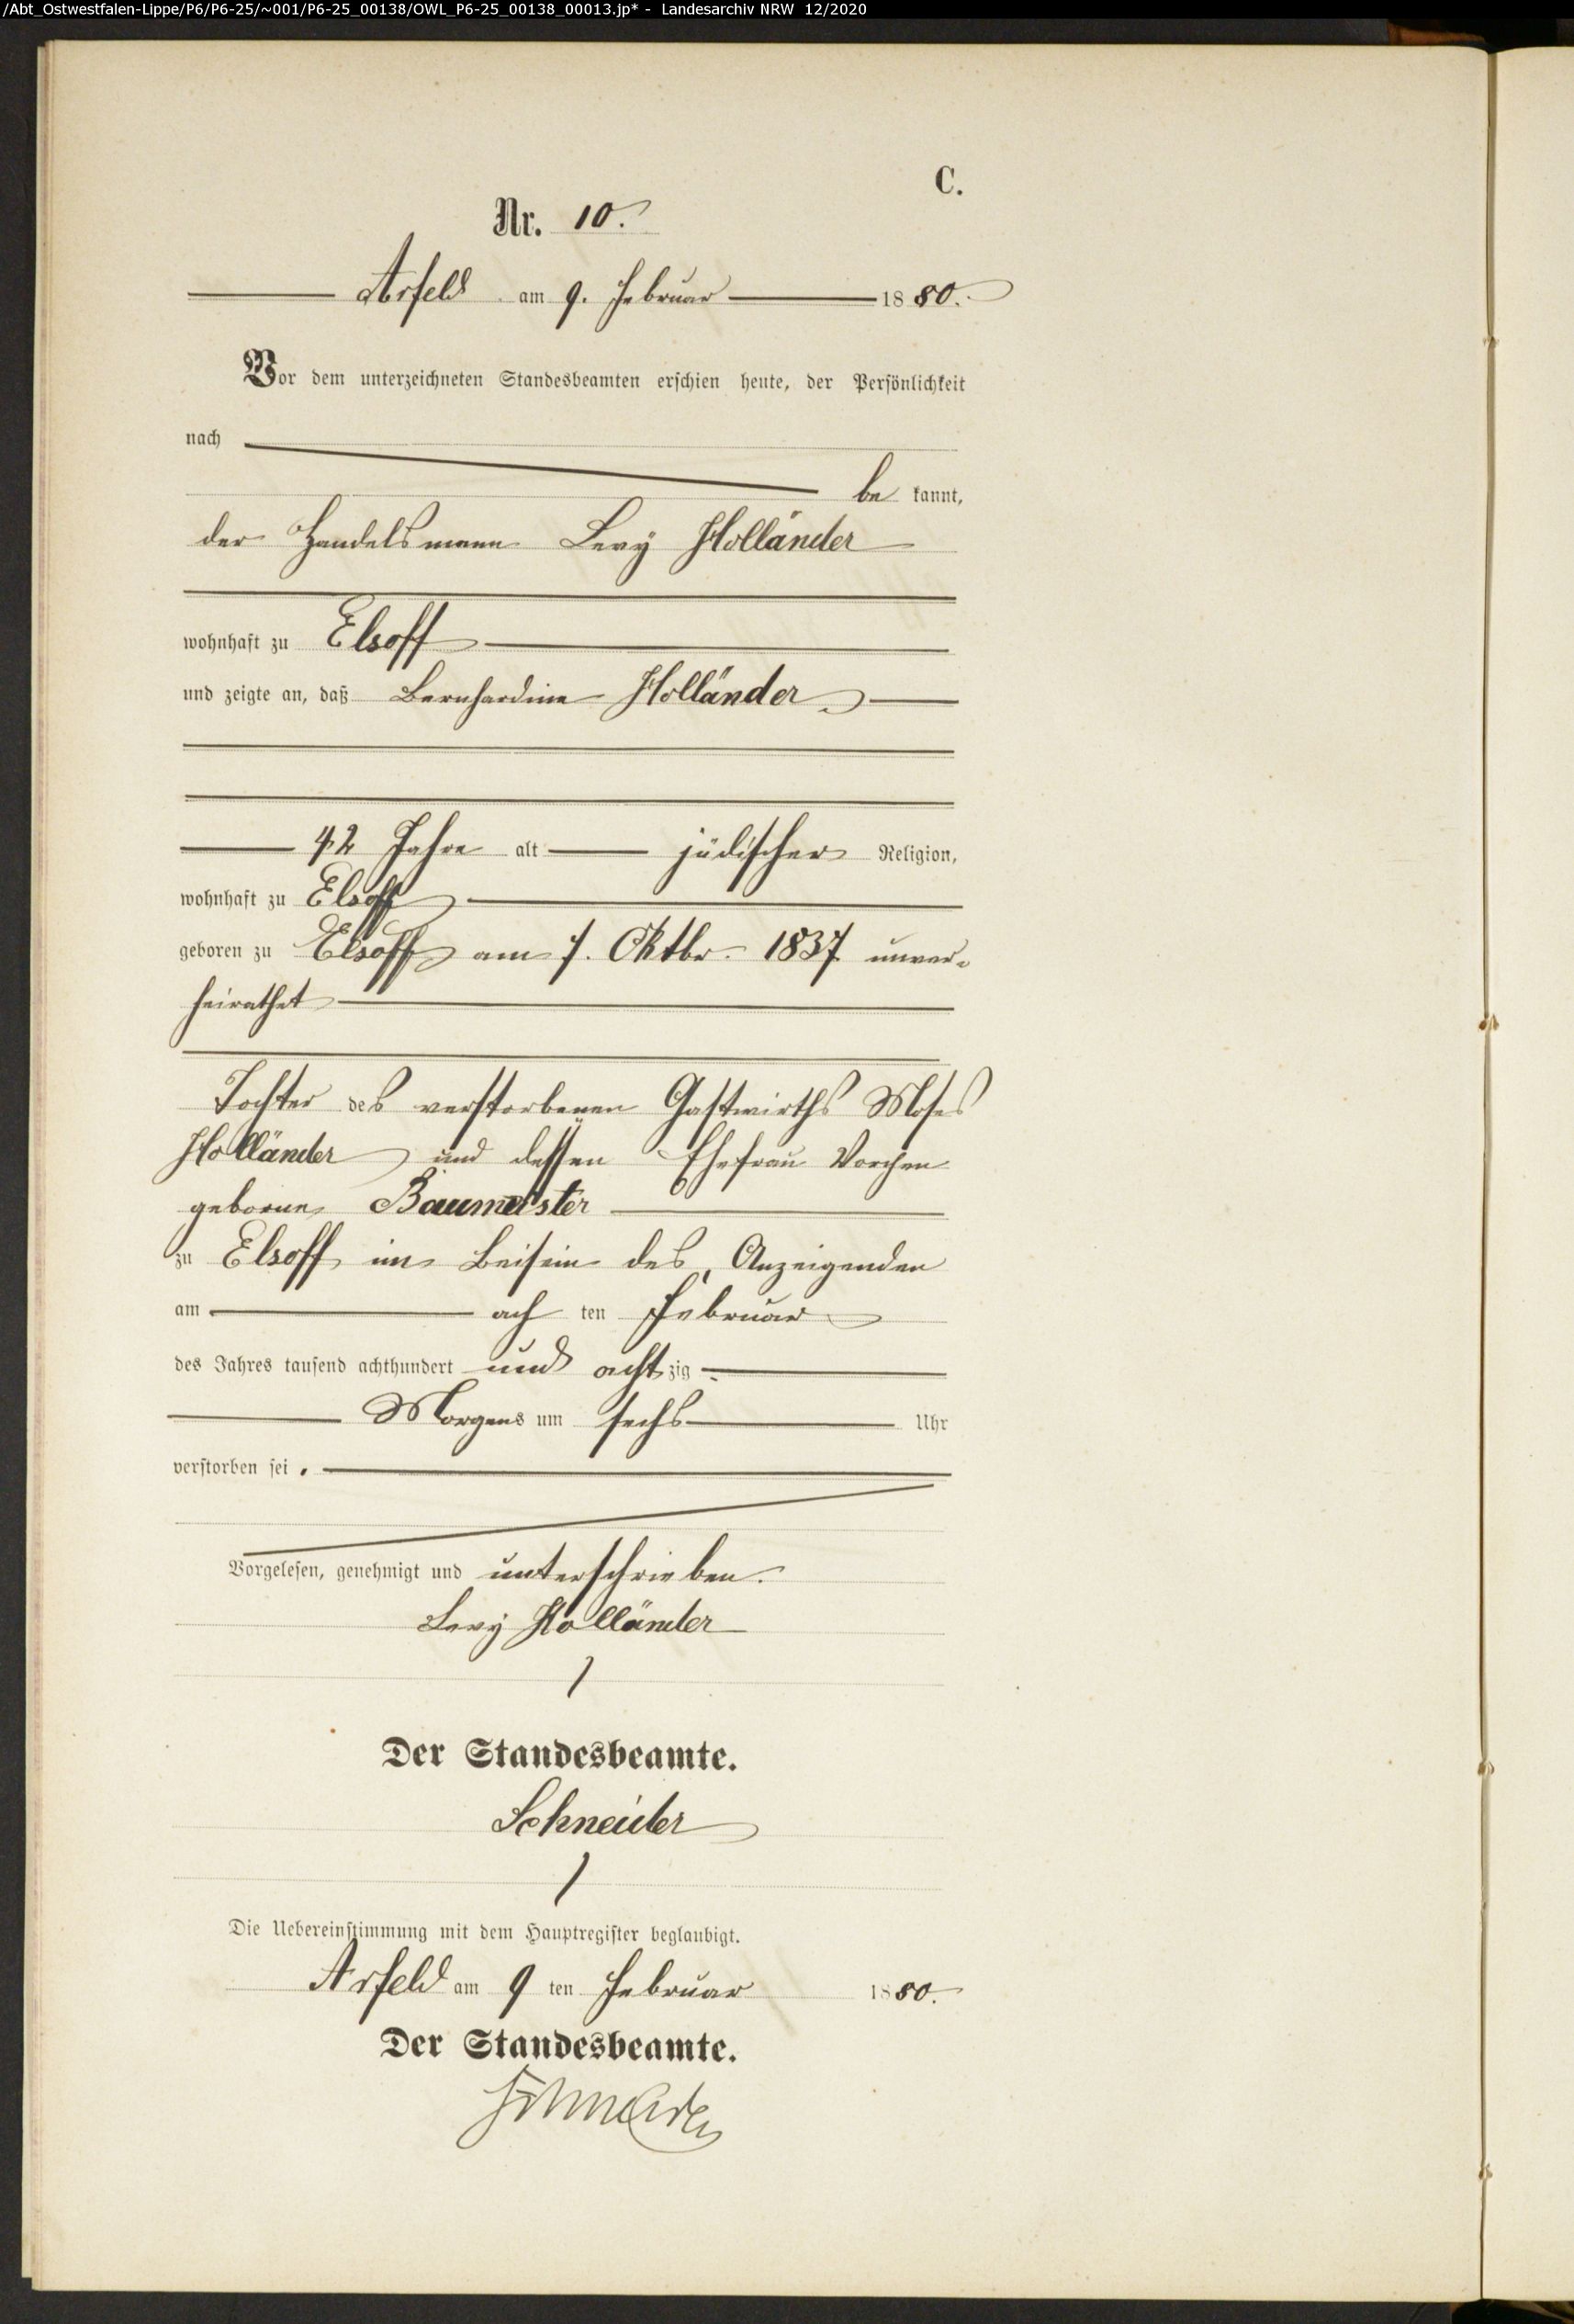 /Abt_Ostwestfalen-Lippe/P6/P6-25/~001/P6-25_00138/OWL_P6-25_00138_00013.jp* - Landesarchiv NRW 12/2020
C.
Nr. 10.
Arfeld am 9. Februar 1880.
Vor dem unterzeichneten Standesbeamten erschien heute, der Persönlichkeit
nach
be kannt,
der Handelsmann Levy Holländer
wohnhaft zu Elsoff
und zeigte an, daß Bernhardine Holländer
42 Jahre alt jüdischer Religion,
wohnhaft zu Elsoff
geboren zu Elsoff am 7. Oktbr. 1837 unver-
heirathet
Tochter des verstorbenen Gastwirths Moses
Holländer und dessen Ehefrau
geborne Baumeister
zu Elsoff im Beisein des Anzeigenden
am ach ten Februar
des Jahres tausend achthundert und acht zig
Morgens um sechs Uhr
verstorben sei.
Vorgelesen, genehmigt und unterschrieben.
Levy Holländer
Der Standesbeamte.
Schneider
Die Uebereinstimmung mit dem Hauptregister beglaubigt.
Arfeld am 9 ten Februar 1880.
Der Standesbeamte.
Schneider